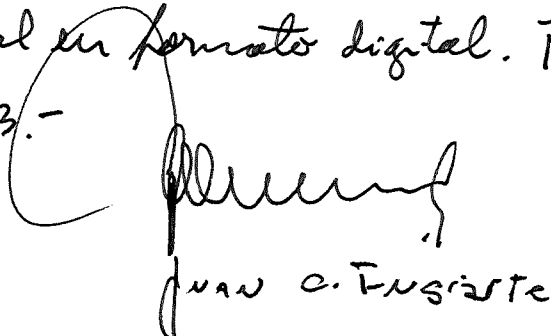 al en formato digital. T
3.-
Juan C. Ingiarte